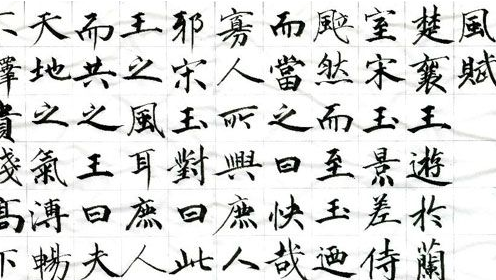 風賦
楚襄王遊於蘭
室宋玉景差侍
颯然而至玉迺
而當之曰快哉
寡人所與庶人
邪宋玉對曰此
王之風耳庶人
而共之王曰夫
天地之氣溥暢
不擇貴賤高下